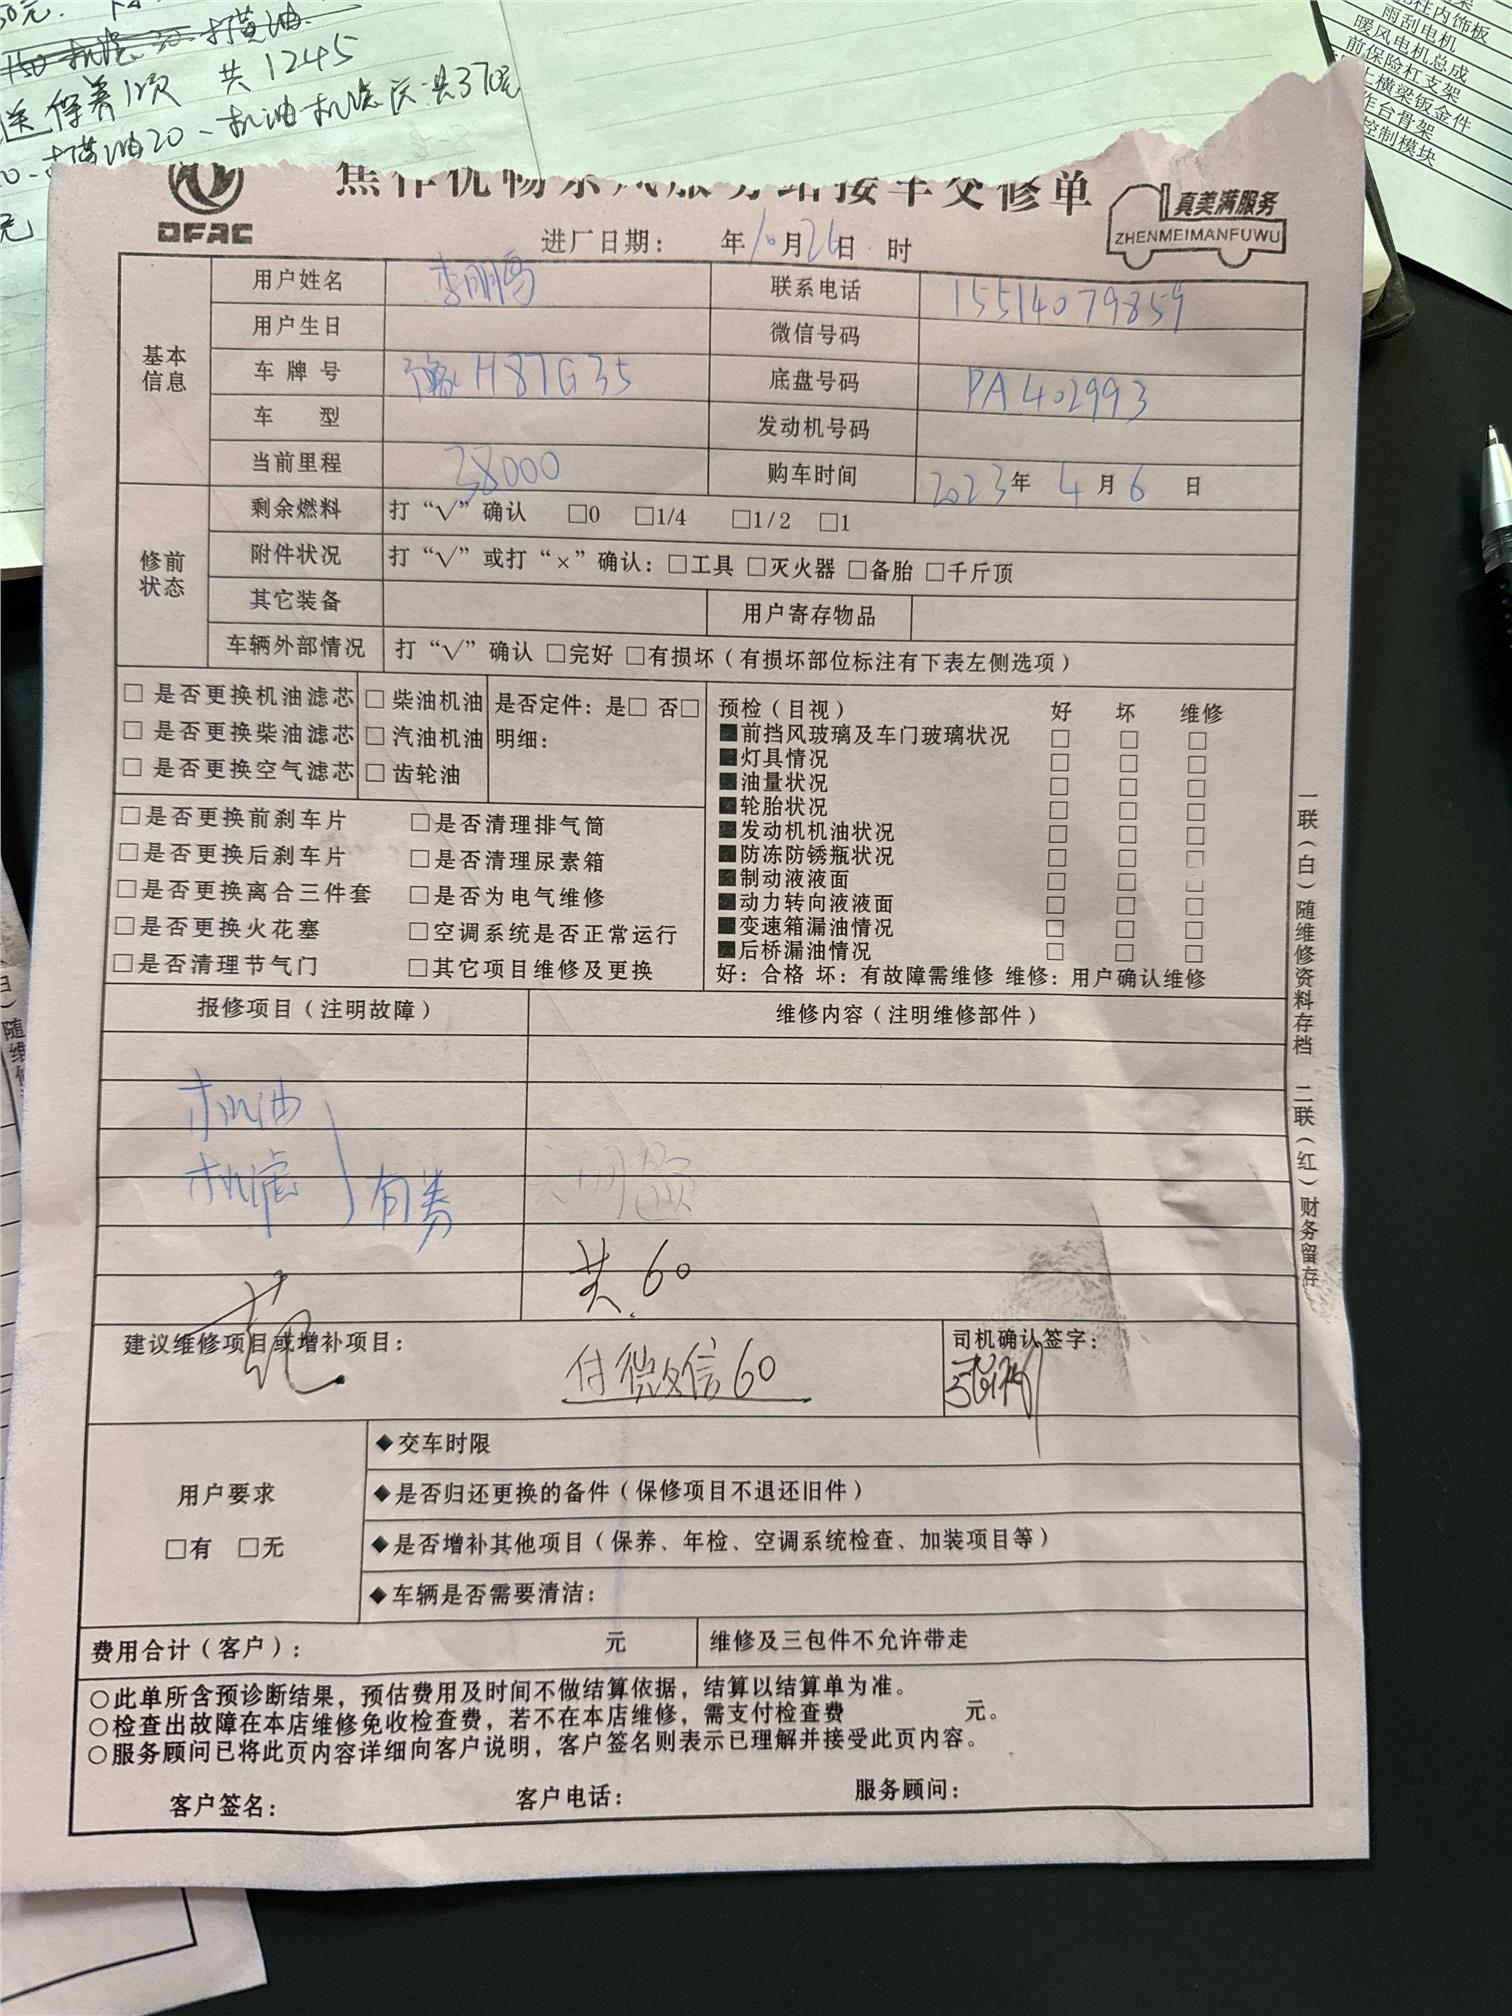 送保养1次 共1245
打黄油20、机油机滤 共370元
元
柱内饰板
雨刮电机
暖风电机总成
前保险杠支架
上横梁钣金件
作台骨架
控制模块
焦作优畅东风服务站接车交修单
DFAC
真美满服务
ZHENMEIMANFUWU
进厂日期: 年10月26日 时
基本信息
用户姓名 联系电话 15514079859
用户生日 微信号码
车牌号 豫H87G35 底盘号码 PA402993
车 型 发动机号码
当前里程 38000 购车时间 2023年4月6日
修前状态
剩余燃料 打“√”确认 □0 □1/4 □1/2 □1
附件状况 打“√”或打“×”确认: □工具 □灭火器 □备胎 □千斤顶
其它装备 用户寄存物品
车辆外部情况 打“√”确认 □完好 □有损坏(有损坏部位标注有下表左侧选项)
□是否更换机油滤芯 □柴油机油 是否定件: 是□ 否□
□是否更换柴油滤芯 □汽油机油 明细:
□是否更换空气滤芯 □齿轮油
□是否更换前刹车片 □是否清理排气筒
□是否更换后刹车片 □是否清理尿素箱
□是否更换离合三件套 □是否为电气维修
□是否更换火花塞 □空调系统是否正常运行
□是否清理节气门 □其它项目维修及更换
预检(目视) 好 坏 维修
■前挡风玻璃及车门玻璃状况 □ □ □
■灯具情况 □ □ □
■油量状况 □ □ □
■轮胎状况 □ □ □
■发动机机油状况 □ □ □
■防冻防锈瓶状况 □ □ □
■制动液液面 □ □ □
■动力转向液液面 □ □ □
■变速箱漏油情况 □ □ □
■后桥漏油情况 □ □ □
好: 合格 坏: 有故障需维修 维修: 用户确认维修
报修项目(注明故障) 维修内容(注明维修部件)
机油
机滤 有券
共60
建议维修项目或增补项目:
付微信60
司机确认签字:
用户要求
□有 □无
◆交车时限
◆是否归还更换的备件(保修项目不退还旧件)
◆是否增补其他项目(保养、年检、空调系统检查、加装项目等)
◆车辆是否需要清洁:
费用合计(客户): 元 维修及三包件不允许带走
○此单所含预诊断结果，预估费用及时间不做结算依据，结算以结算单为准。
○检查出故障在本店维修免收检查费，若不在本店维修，需支付检查费 元。
○服务顾问已将此页内容详细向客户说明，客户签名则表示已理解并接受此页内容。
客户签名: 客户电话: 服务顾问:
一联(白)随维修资料存档 二联(红)财务留存